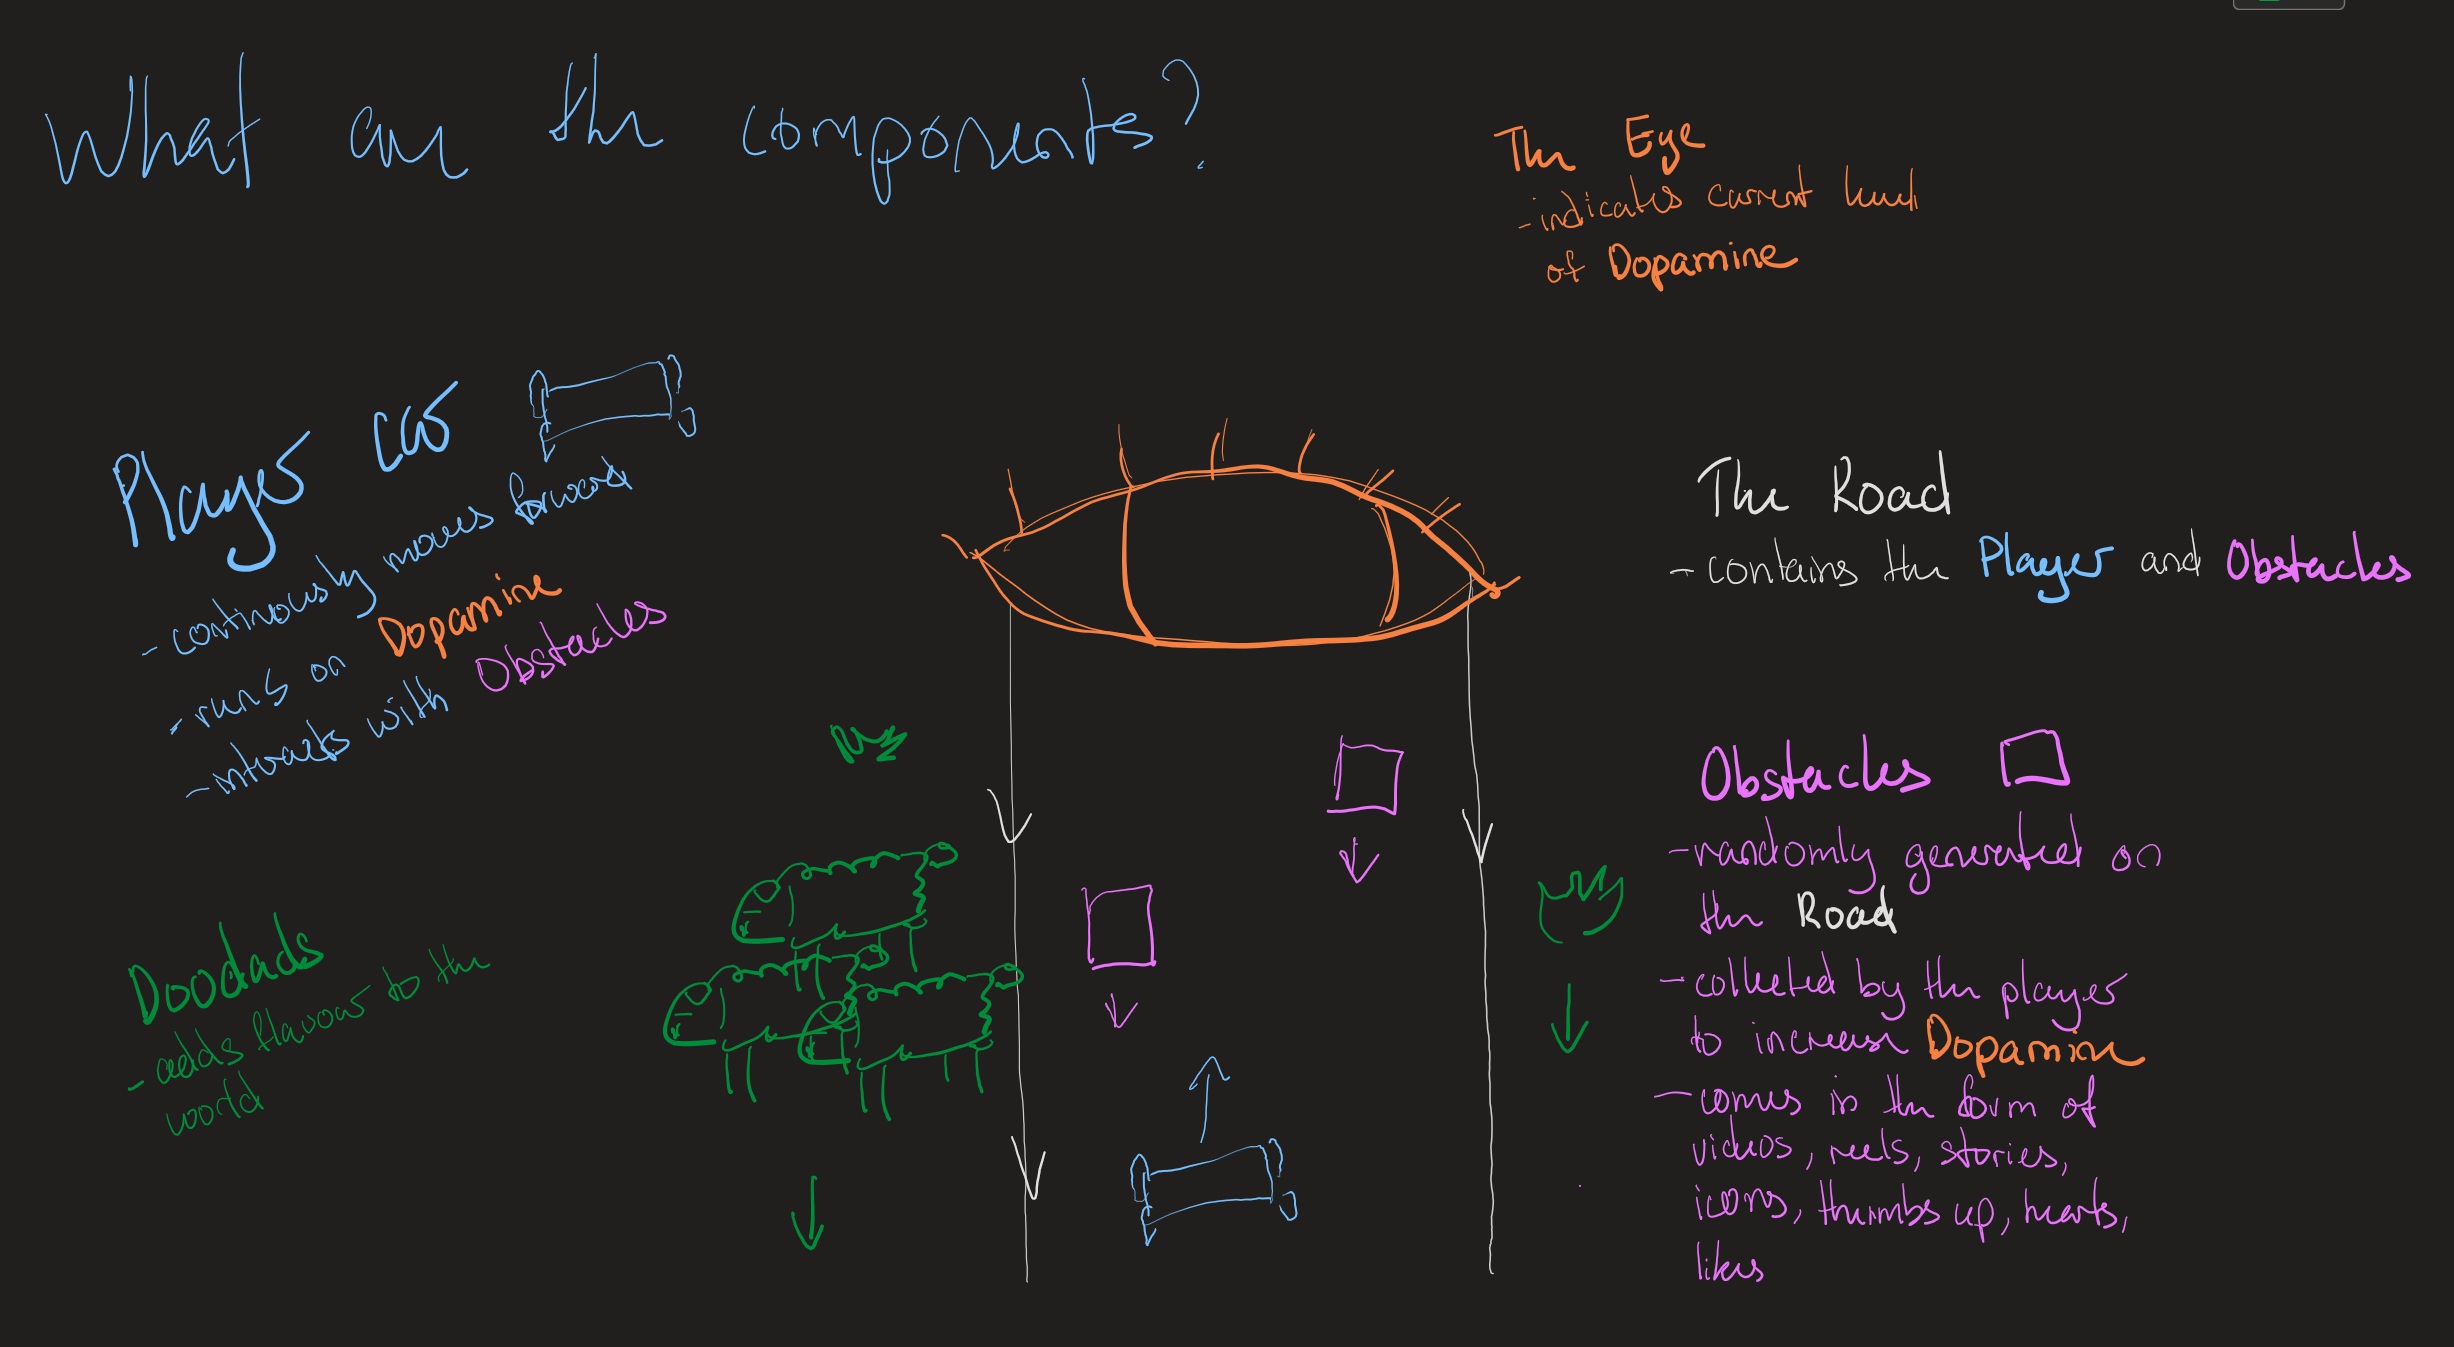 What are the components?
The Eye
- indicates current level
of Dopamine
Player car
- continuously moves forward
- runs on Dopamine
- interacts with Obstacles
The Road
- contains the Player and Obstacles
Obstacles
- randomly generated on
the Road
- collected by the player
to increase Dopamine
- comes in the form of
videos, reels, stories,
icons, thumbs up, hearts,
likes
Doodads
- adds flavour to the
world